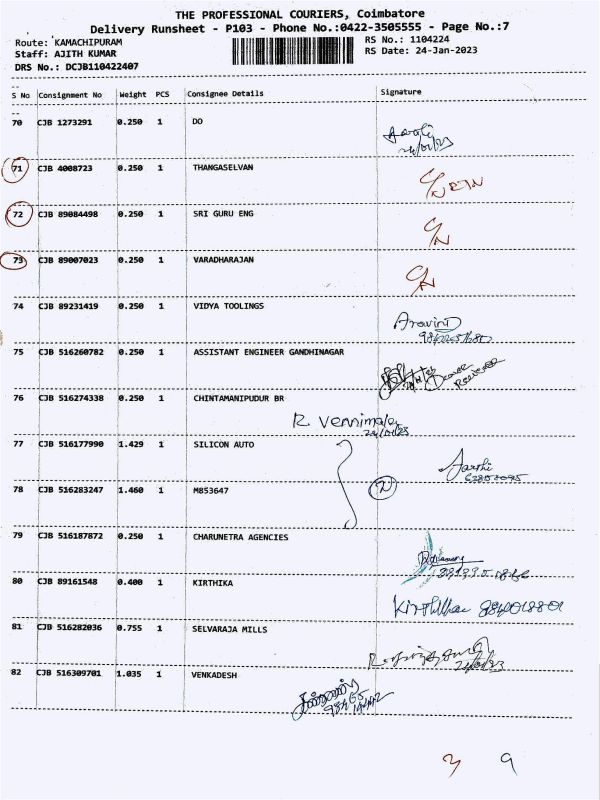 THE PROFESSIONAL COURIERS, Coimbatore
Delivery Runsheet - P103 - Phone No.:0422-3505555 - Page No.:7
Route: KAMACHIPURAM RS No.: 1104224
Staff: AJITH KUMAR RS Date: 24-Jan-2023
DRS No.: DCJB110422407
S No Consignment No Weight PCS Consignee Details Signature
70 CJB 1273291 0.250 1 DO
71 CJB 4008723 0.250 1 THANGASELVAN C/N RTN
72 CJB 89084498 0.250 1 SRI GURU ENG C/N
73 CJB 89007023 0.250 1 VARADHARAJAN C/N
74 CJB 89231419 0.250 1 VIDYA TOOLINGS Aravind
75 CJB 516260782 0.250 1 ASSISTANT ENGINEER GANDHINAGAR
76 CJB 516274338 0.250 1 CHINTAMANIPUDUR BR
R. Vennimalai
24/01/23
77 CJB 516177990 1.429 1 SILICON AUTO Aarthi
78 CJB 516283247 1.460 1 M853647 2
79 CJB 516187872 0.250 1 CHARUNETRA AGENCIES
80 CJB 89161548 0.400 1 KIRTHIKA
81 CJB 516282036 0.755 1 SELVARAJA MILLS
82 CJB 516309701 1.035 1 VENKADESH
3 9